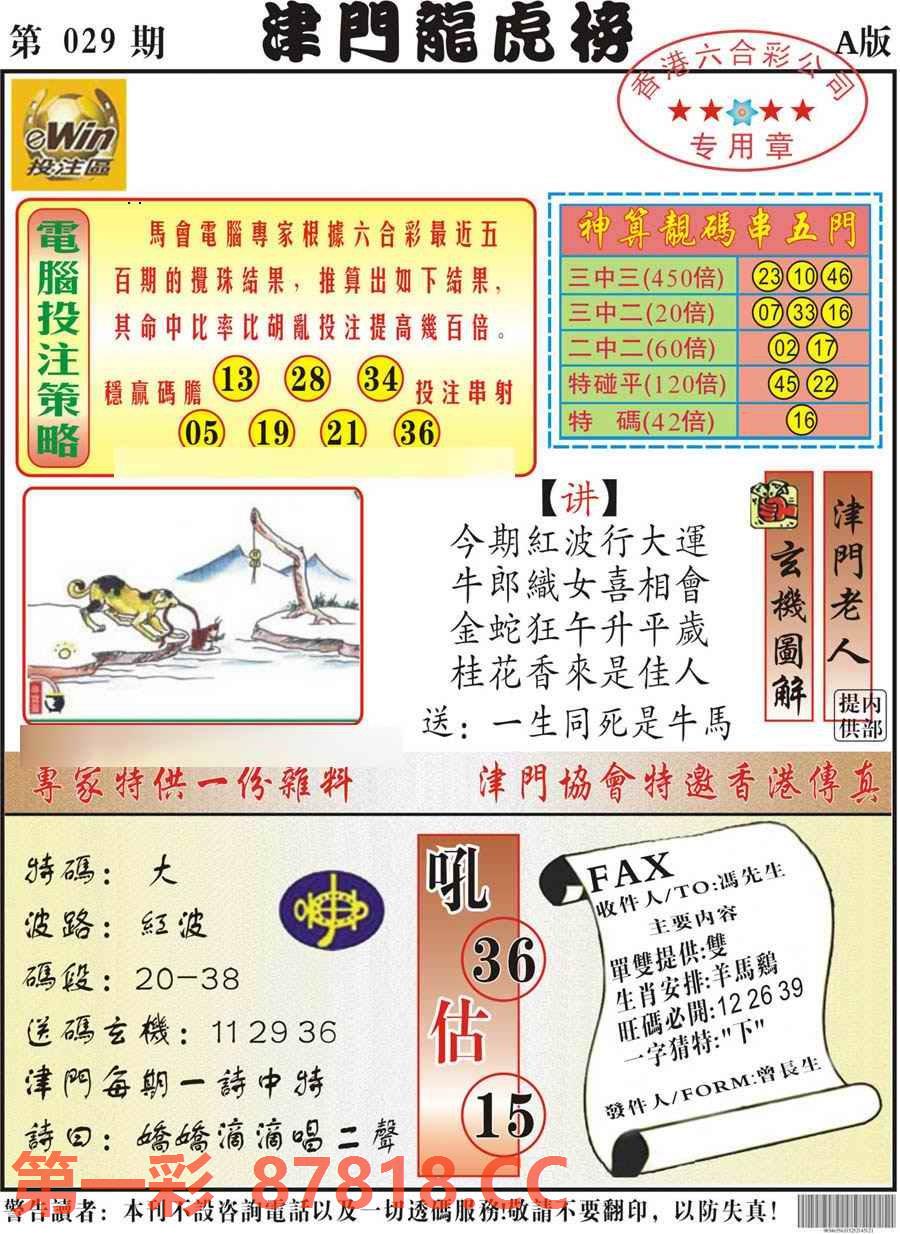 第 029 期
津門龍虎榜
A版
香港六合彩公司
专用章
eWin
投注區
電腦投注策略
馬會電腦專家根據六合彩最近五
百期的攪珠結果，推算出如下結果，
其命中比率比胡亂投注提高幾百倍。
穩贏碼膽 13 28 34 投注串射
05 19 21 36
神算靚碼串五門
三中三(450倍) 23 10 46
三中二(20倍) 07 33 16
二中二(60倍) 02 17
特碰平(120倍) 45 22
特 碼(42倍) 16
【讲】
今期紅波行大運
牛郎織女喜相會
金蛇狂午升平歲
桂花香來是佳人
送：一生同死是牛馬
玄機圖解
津門老人
内部提供
專家特供一份雜料
津門協會特邀香港傳真
特碼：大
波路：紅波
碼段：20-38
送碼玄機：11 29 36
津門每期一詩中特
詩曰：嬌嬌滴滴唱二聲
吼
36
估
15
FAX
收件人/TO:馮先生
主要内容
單雙提供:雙
生肖安排:羊馬鷄
旺碼必開:12 26 39
一字猜特:"下"
發件人/FORM:曾長生
第一彩 87818.CC
警告讀者：本刊不設咨詢電話以及一切透碼服務!敬請不要翻印，以防失真!